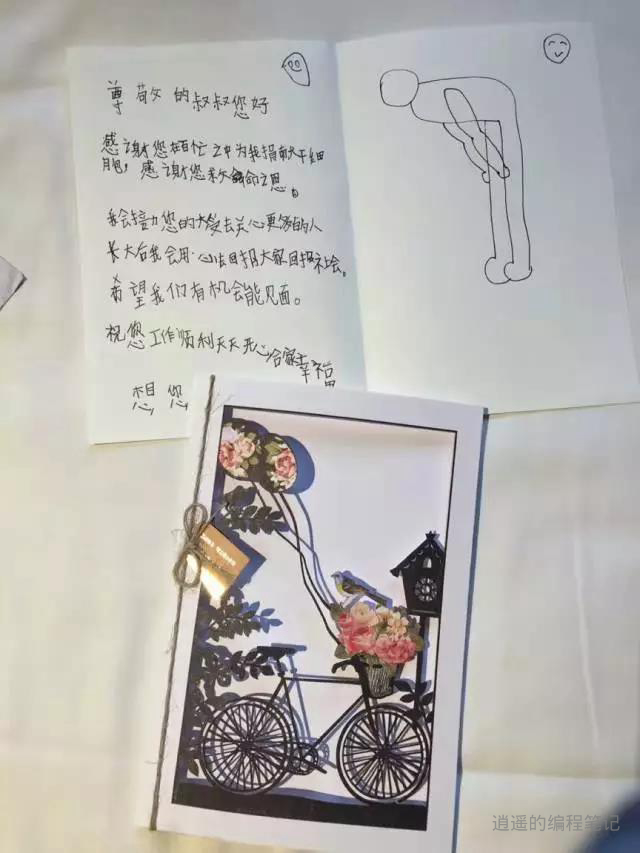 尊敬的叔叔您好
感谢您在百忙之中为我捐献干细
胞，感谢您救命之恩。
我会接力您的大爱去关心更多的人
长大后我会用心去回报大家回报社会。
希望我们有机会能见面。
祝您工作顺利天天开心合家幸福
想您
逍遥的编程笔记